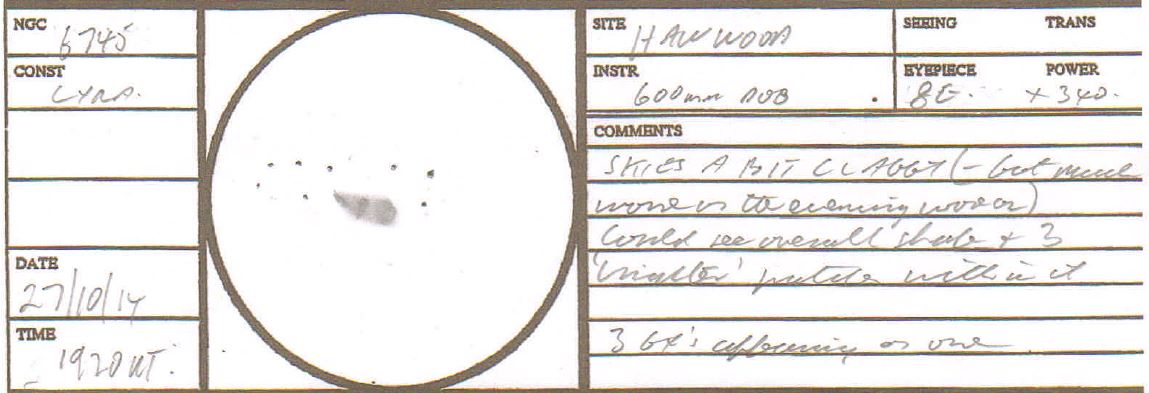 NGC 6745
CONST LYRA.
DATE 27/10/14
TIME 1920 UT.
SITE HAWWOOD
SEEING TRANS
INSTR 600mm DOB
EYEPIECE 8E. POWER x340.
COMMENTS
SKIES A BIT CLAGGY (- but much
worse as the evening wore on)
Could see overall shade + 3
'brighter' patches within it
3 GX's appearing as one